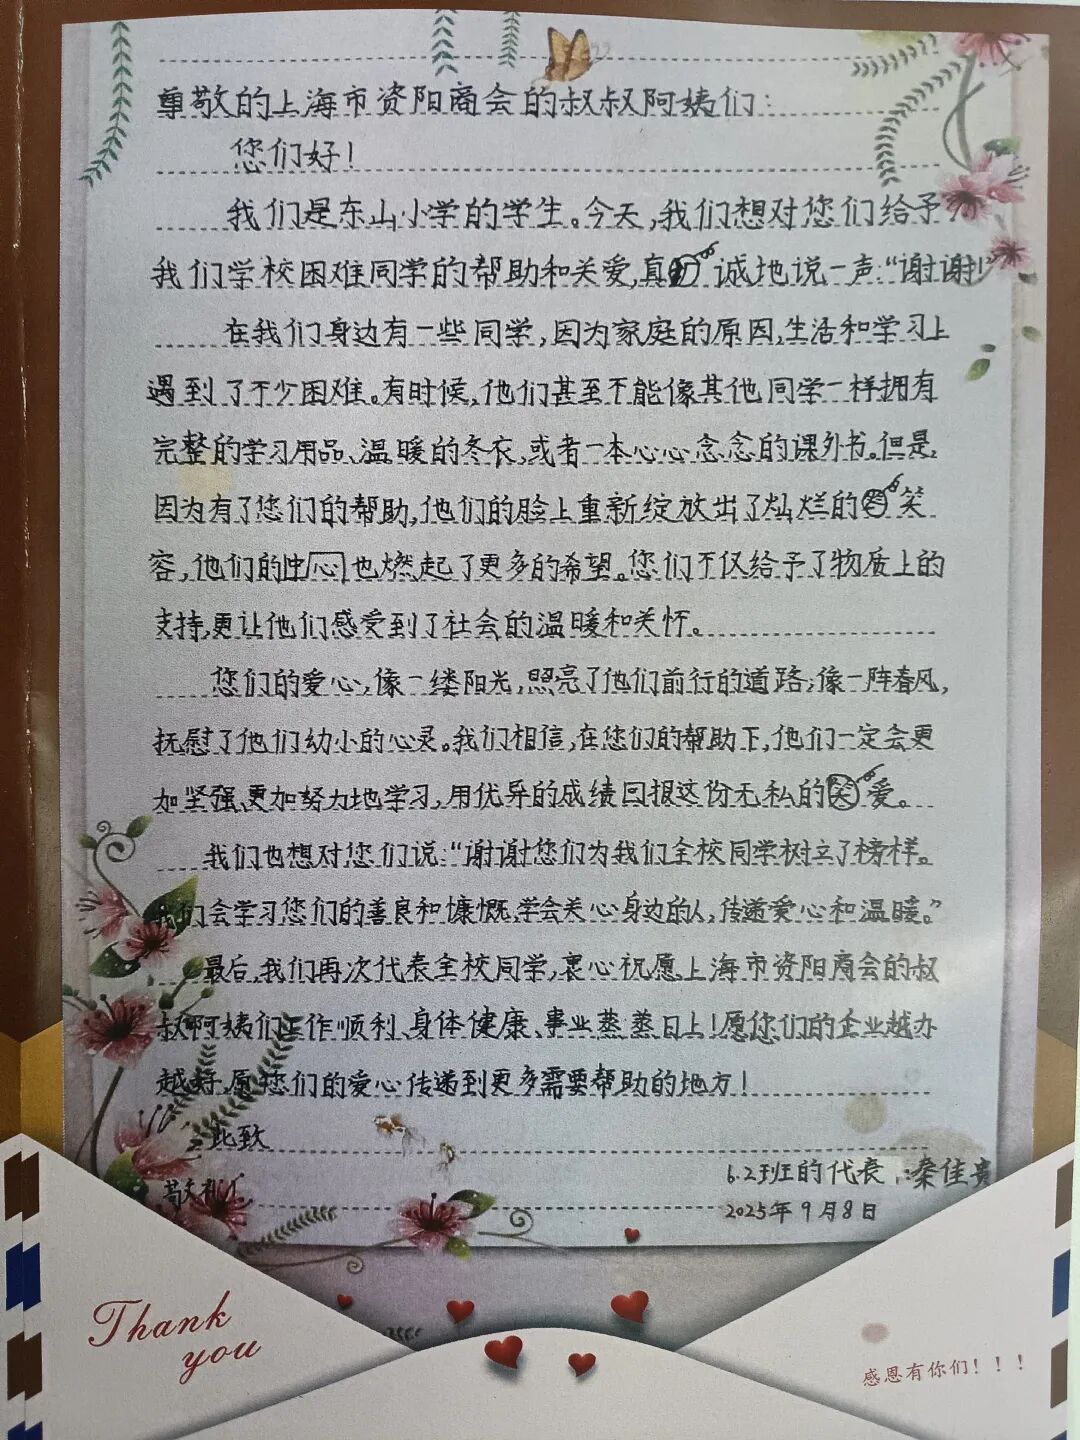 尊敬的上海市资阳商会的叔叔阿姨们：
您们好！
我们是东山小学的学生。今天，我们想对您们给予
我们学校困难同学的帮助和关爱，真诚地说一声：“谢谢！”
在我们身边有一些同学，因为家庭的原因，生活和学习上
遇到了不少困难。有时候，他们甚至不能像其他同学一样拥有
完整的学习用品、温暖的冬衣，或者一本心心念念的课外书。但是，
因为有了您们的帮助，他们的脸上重新绽放出了灿烂的笑
容，他们的心也燃起了更多的希望。您们不仅给予了物质上的
支持，更让他们感受到了社会的温暖和关怀。
您们的爱心，像一缕阳光，照亮了他们前行的道路；像一阵春风，
抚慰了他们幼小的心灵。我们相信，在您们的帮助下，他们一定会更
加坚强、更加努力地学习，用优异的成绩回报这份无私的爱。
我们也想对您们说：“谢谢您们为我们全校同学树立了榜样。
我们会学习您们的善良和慷慨，学会关心身边的人，传递爱心和温暖。”
最后，我们再次代表全校同学，衷心祝愿上海市资阳商会的叔
叔阿姨们工作顺利、身体健康、事业蒸蒸日上！愿您们的企业越办
越好，愿您们的爱心传递到更多需要帮助的地方！
此致
敬礼
6.2班的代表：秦佳贵
2025年9月8日
Thank
you
感恩有你们！！！